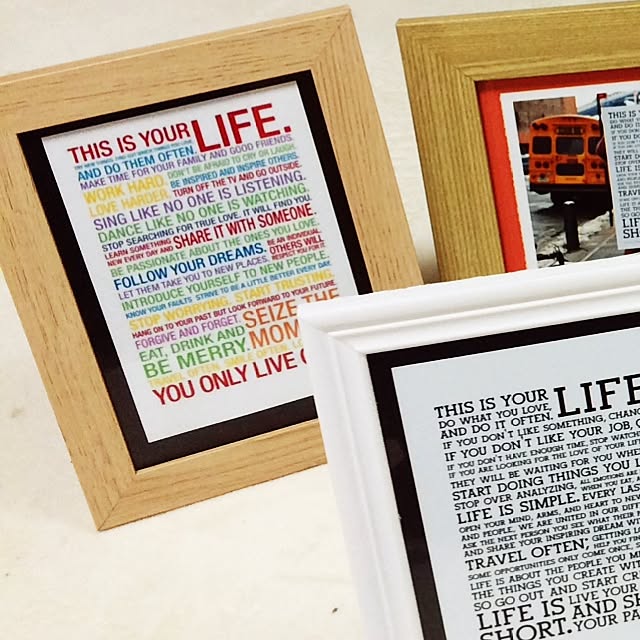 THIS IS YOUR LIFE.
AND DO THEM OFTEN.
MAKE TIME FOR YOUR FAMILY AND GOOD FRIENDS.
WORK HARD. DON'T BE AFRAID TO CRY OR LAUGH.
LOVE HARDER. BE INSPIRED AND INSPIRE OTHERS.
TURN OFF THE TV AND GO OUTSIDE.
SING LIKE NO ONE IS LISTENING.
DANCE LIKE NO ONE IS WATCHING.
STOP SEARCHING FOR TRUE LOVE, IT WILL FIND YOU.
LEARN SOMETHING NEW EVERY DAY AND SHARE IT WITH SOMEONE.
BE PASSIONATE ABOUT THE ONES YOU LOVE.
FOLLOW YOUR DREAMS. BE AN INDIVIDUAL. OTHERS WILL RESPECT YOU FOR IT.
LET THEM TAKE YOU TO NEW PLACES.
INTRODUCE YOURSELF TO NEW PEOPLE.
KNOW YOUR FAULTS STRIVE TO BE A LITTLE BETTER EVERY DAY.
STOP WORRYING. START TRUSTING.
HANG ON TO YOUR PAST BUT LOOK FORWARD TO YOUR FUTURE.
FORGIVE AND FORGET. SEIZE THE
EAT, DRINK AND MOM
BE MERRY.
TRAVEL OFTEN.
YOU ONLY LIVE
THIS IS YOUR
DO WHAT
AND DO IT
THIS IS YOUR LIFE
DO WHAT YOU LOVE,
AND DO IT OFTEN.
IF YOU DON'T LIKE SOMETHING, CHAN
IF YOU DON'T LIKE YOUR JOB, Q
IF YOU DON'T HAVE ENOUGH TIME, STOP WATCH
IF YOU ARE LOOKING FOR THE LOVE OF YOUR LIF
THEY WILL BE WAITING FOR YOU WHE
START DOING THINGS YOU L
STOP OVER ANALYZING, ALL EMOTIONS ARE
LIFE IS SIMPLE. WHEN YOU EAT, EVERY LAS
OPEN YOUR MIND, ARMS, AND HEART TO NE
AND PEOPLE, WE ARE UNITED IN OUR DIFF
ASK THE NEXT PERSON YOU SEE WHAT THEIR
AND SHARE YOUR INSPIRING DREAM W
TRAVEL OFTEN; GETTING
HELP YOU
SOME OPPORTUNITIES ONLY COME ONCE, S
LIFE IS ABOUT THE PEOPLE YOU M
THE THINGS YOU CREATE WIT
SO GO OUT AND START CR
LIFE IS LIVE YOUR
SHORT. AND SH
YOUR PA